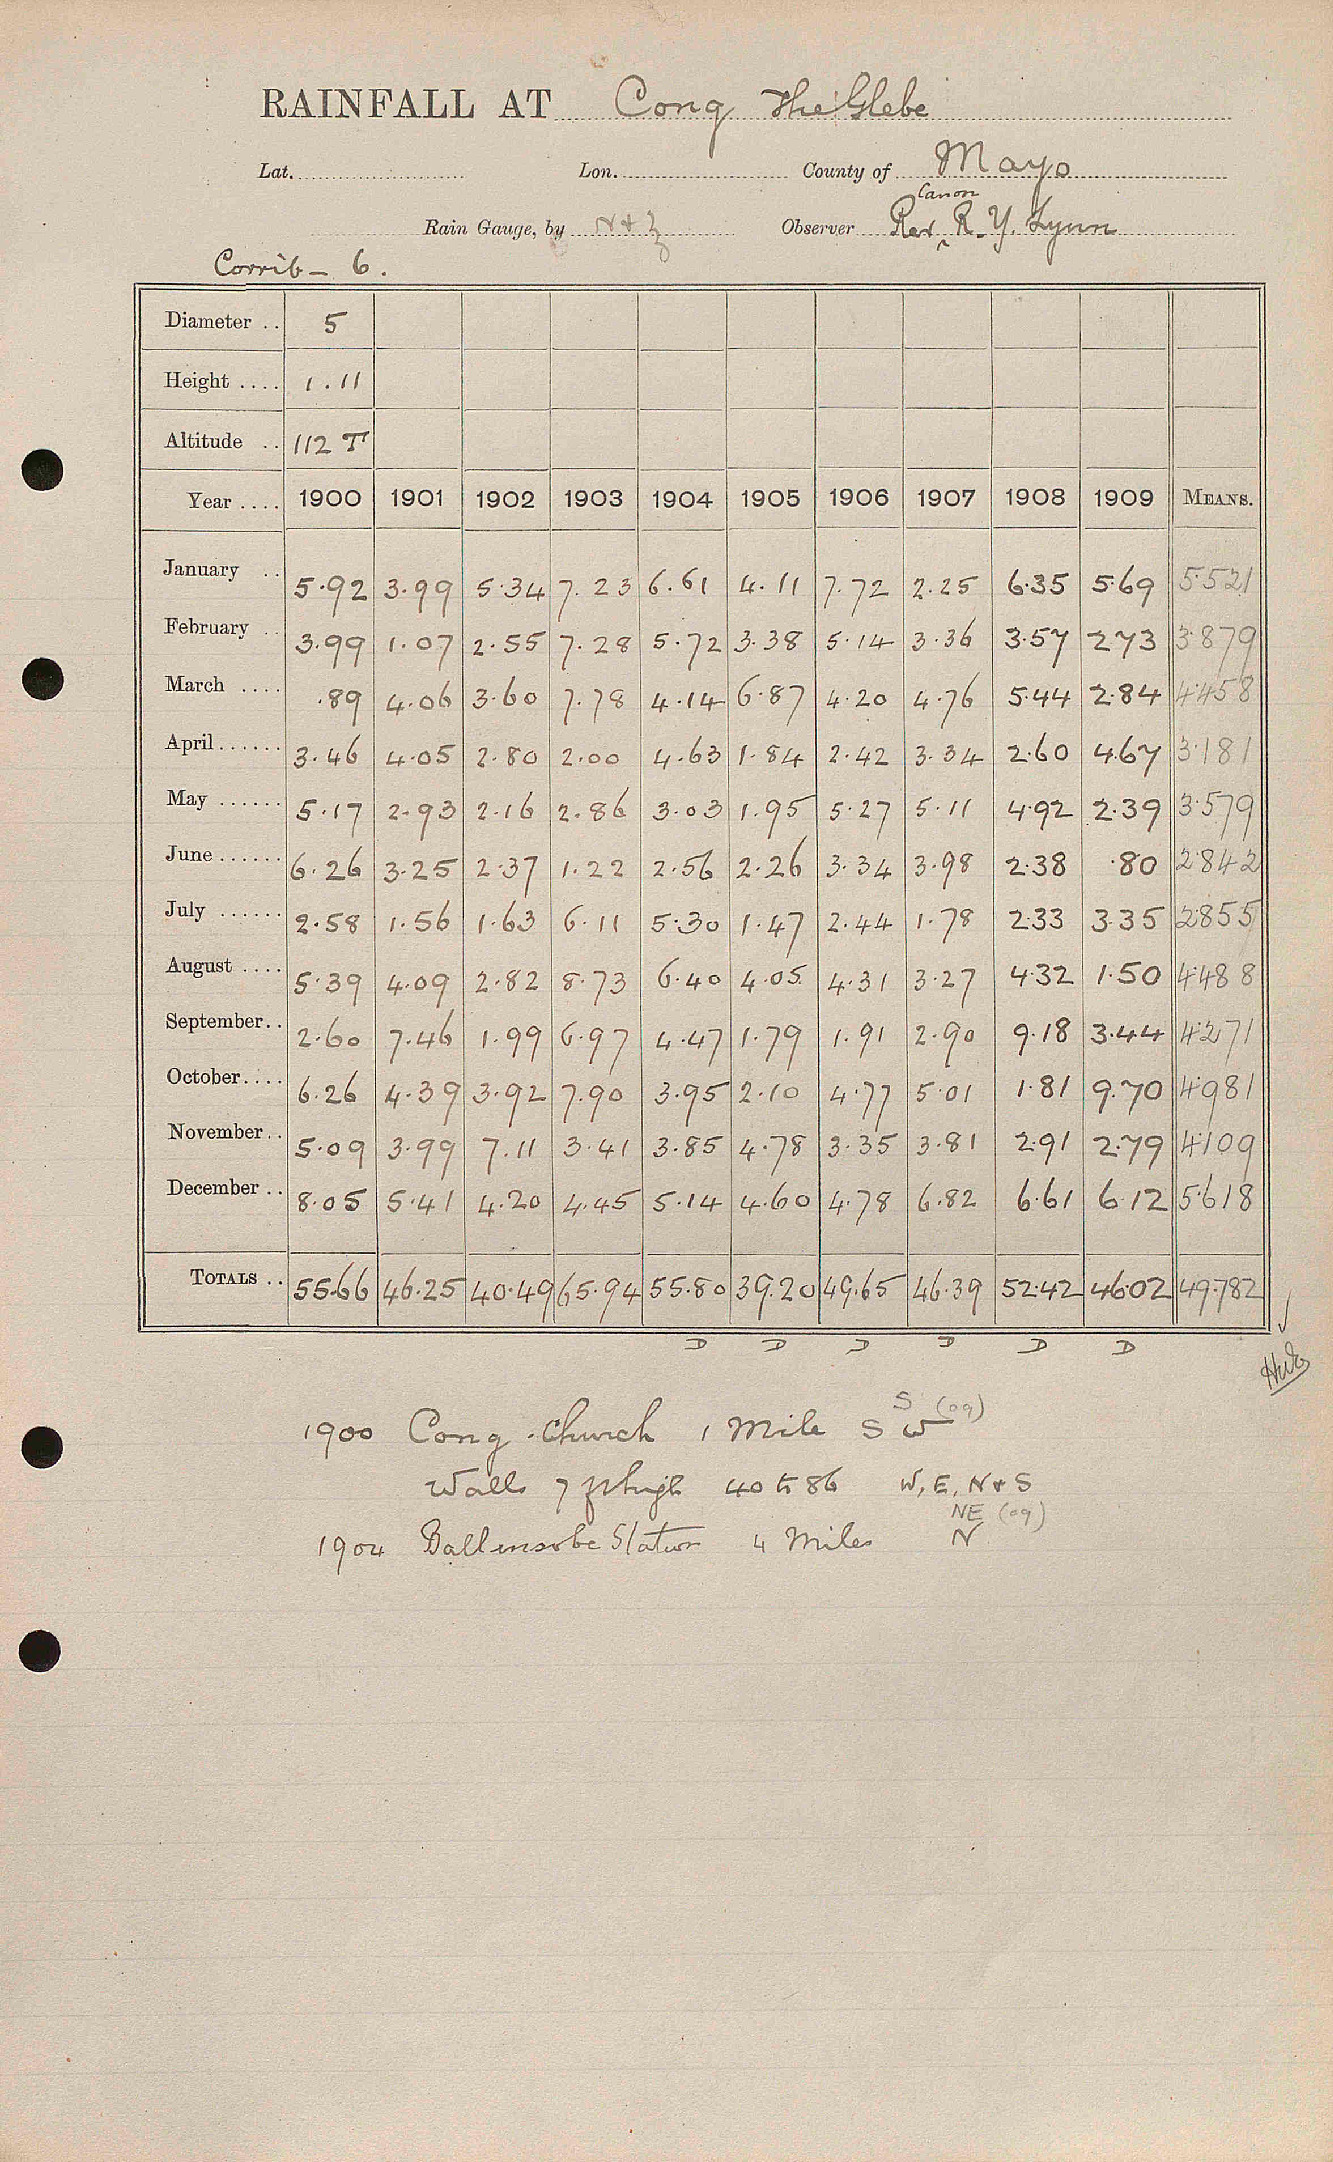 RAINFALL AT Cong The Glebe
Lat. Lon. County of Mayo
Canon
Rain Gauge, by N & Z Observer Rev. R. Y. Lynn
Corrib - 6.
Diameter .. 5
Height .... 1.11
Altitude .. 112 T
Year .... 1900 1901 1902 1903 1904 1905 1906 1907 1908 1909 MEANS.
January .. 5.92 3.99 5.34 7.23 6.61 4.11 7.72 2.25 6.35 5.69 5.521
February .. 3.99 1.07 2.55 7.28 5.72 3.38 5.14 3.36 3.57 2.73 3.879
March .... .89 4.06 3.60 7.78 4.14 6.87 4.20 4.76 5.44 2.84 4.458
April ...... 3.46 4.05 2.80 2.00 4.63 1.84 2.42 3.34 2.60 4.67 3.181
May ...... 5.17 2.93 2.16 2.86 3.03 1.95 5.27 5.11 4.92 2.39 3.579
June ...... 6.26 3.25 2.37 1.22 2.56 2.26 3.34 3.98 2.38 .80 2.842
July ...... 2.58 1.56 1.63 6.11 5.30 1.47 2.44 1.78 2.33 3.35 2.855
August .... 5.39 4.09 2.82 8.73 6.40 4.05 4.31 3.27 4.32 1.50 4.488
September.. 2.60 7.46 1.99 6.97 4.47 1.79 1.91 2.90 9.18 3.44 4.271
October.... 6.26 4.39 3.92 7.90 3.95 2.10 4.77 5.01 1.81 9.70 4.981
November.. 5.09 3.99 7.11 3.41 3.85 4.78 3.35 3.81 2.91 2.79 4.109
December .. 8.05 5.41 4.20 4.45 5.14 4.60 4.78 6.82 6.61 6.12 5.618
TOTALS .. 55.66 46.25 40.49 65.94 55.80 39.20 49.65 46.39 52.42 46.02 49.782
D D D D D D
S (09)
1900 Cong Church 1 Mile S W
Walls 7 ft high 40 to 86 W, E, N & S
NE (09)
1904 Ballinrobe Station 4 Miles N